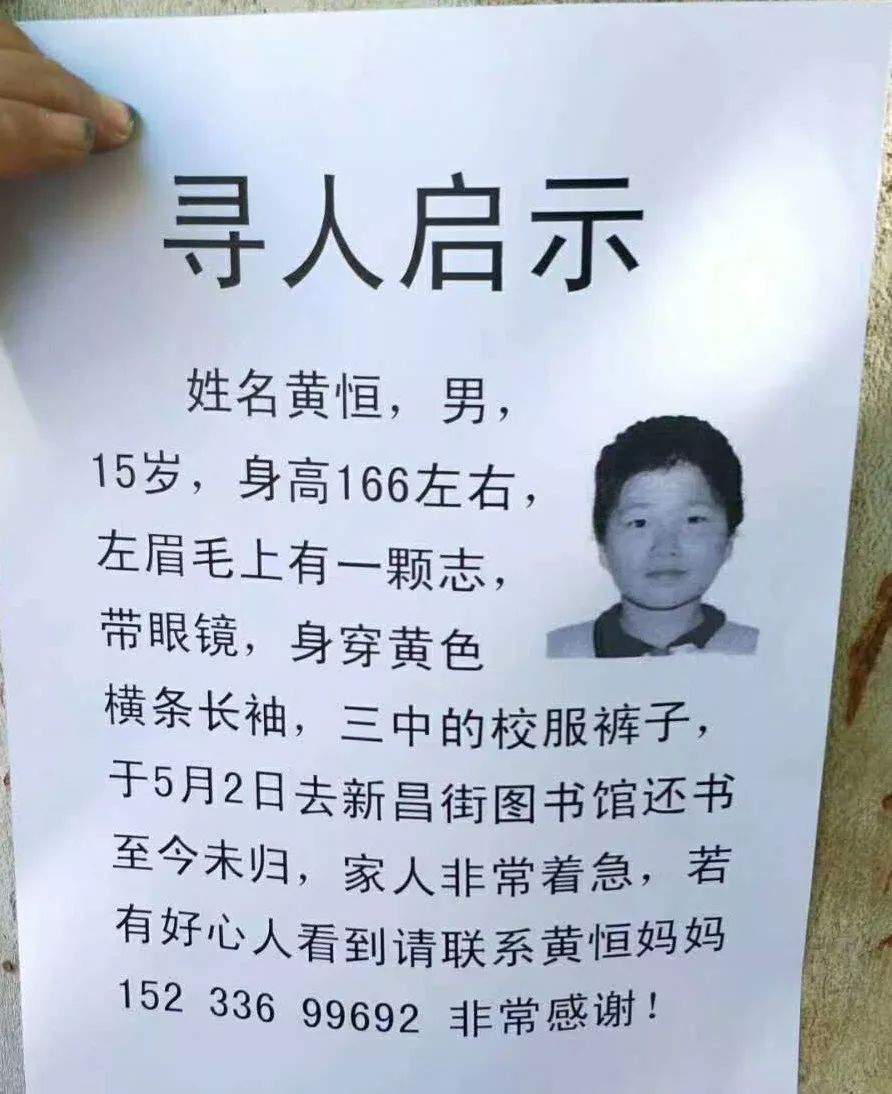 寻人启示
姓名黄恒，男，
15岁，身高166左右，
左眉毛上有一颗志，
带眼镜，身穿黄色
横条长袖，三中的校服裤子，
于5月2日去新昌街图书馆还书
至今未归，家人非常着急，若
有好心人看到请联系黄恒妈妈
152 336 99692 非常感谢！